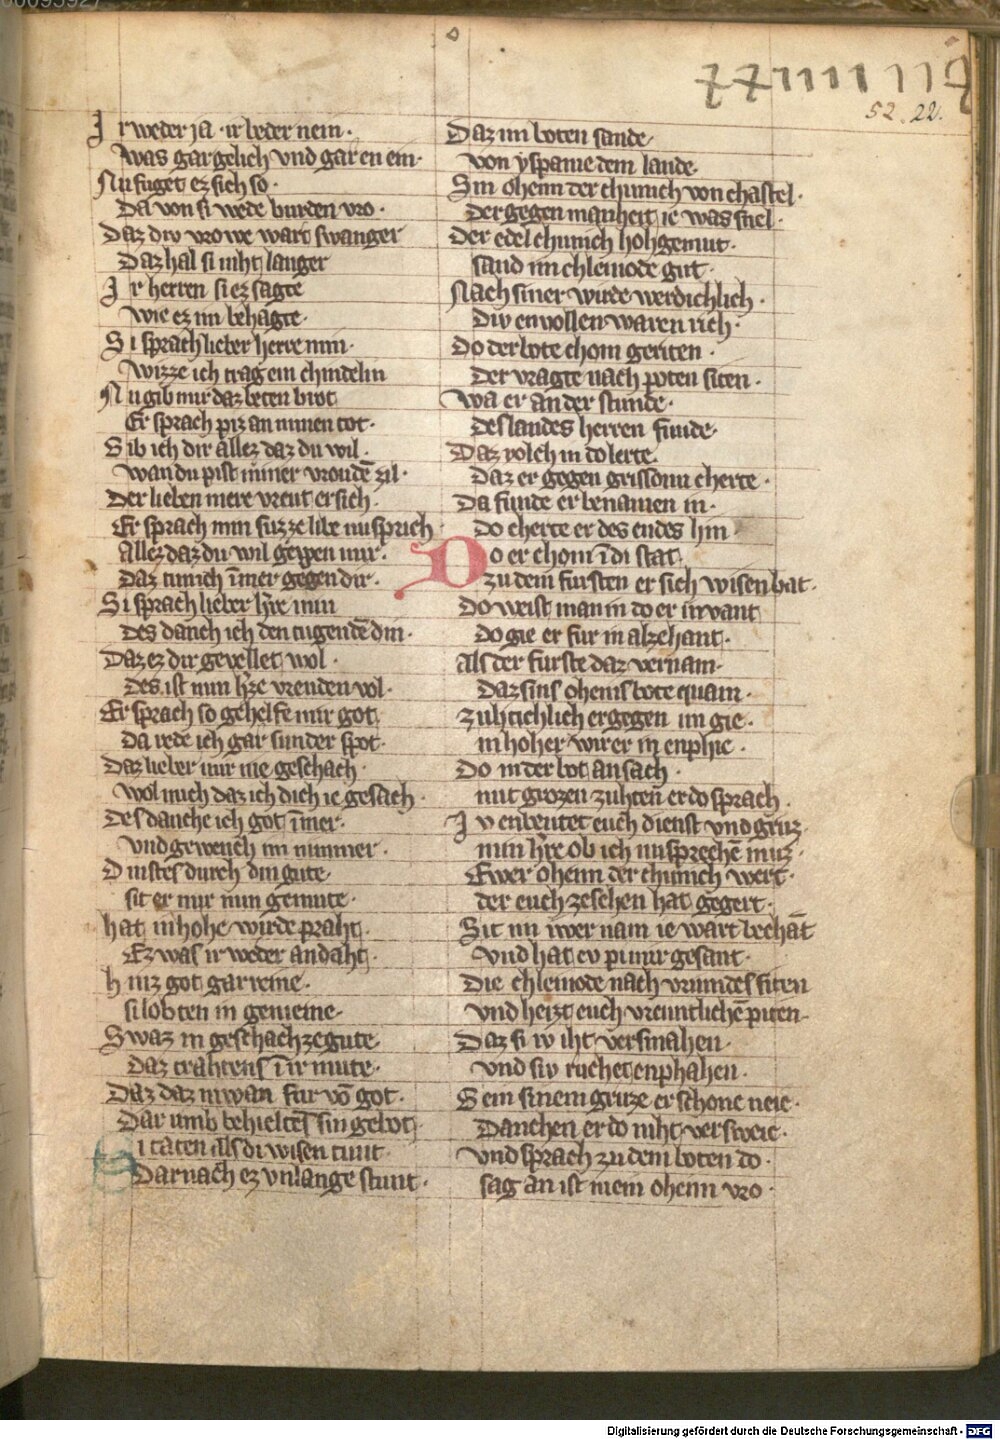 Ir weder ja · ir beder nein ·
Was gar gelich vnd gar en ein ·
Nu fuget ez sich so ·
Da von si wede burden vro ·
Daz div vrowe wart swanger
Daz hal si niht langer
Ir herren si ez sagte
wie ez im behagte ·
Si sprach lieber herre min ·
wizze ich trag ein chindelin
Nu gib mir daz beten brot
Er sprach piz an minen tot ·
Gib ich dir allez daz du wil ·
wan du pist im̄er vroudē zil ·
Der lieben mere vreut er sich ·
Er sprach min suzze libe nu sprich
Allez daz du wil gepen mir ·
Daz tun ich im̄er gegen dir ·
Si sprach lieber h̄re min
Des danch ich den tugendē din ·
Daz ez dir gevellet wol ·
Des ist min h̄ze vreuden vol ·
Er sprach so gehelfe mir got
Da rede ich gar sunder spot ·
Daz lieber mir nie geschach ·
wol mich daz ich dich ie gesach ·
Des danche ich got im̄er ·
vnd gewench im nimmer ·
Dinstes durch din gute ·
sit er mir min gemute ·
hat in hohe wirde praht ·
Ez was ir weder andaht ·
hinz got gar reine ·
si lobten in gemeine ·
Swaz in geschach ze gute ·
Daz trahtens in ir mute ·
Daz daz niwan fur vō got ·
Dar umb behieltēs sin gebot
Si taten als di wisen tunt
Darnach ez vnlange stunt ·
Daz im boten sande ·
von yspanie dem lande ·
Sin ohenn der chunich von chastel ·
Der gegen manheit ie was snel ·
Der edel chunich hohgemut ·
sand im chleinode gut ·
Nach siner wirde werdichlich ·
Div envollen waren rich ·
Do der bote chom geriten ·
Der vragte nach poten siten ·
wa er an der stunde ·
des landes herren funde ·
Daz volch in do lerte
Daz er gegen grissonu cherte ·
Da funde er benamen in ·
Do cherte er des endes hin
Do er chom in di stat
zu dem fursten er sich wisen bat ·
Do weist man in do er in vant
do gie er fur in alzehant ·
Als der furste daz vernam ·
Daz sins ohenis bote quam ·
zuhtichlich er gegen im gie ·
in hoher wir er in enphie ·
Do in der bot ansach ·
mit grozen zuhten er do sprach ·
Iv enbeutet euch dienst vnd gruz ·
min h̄re ob ich nu sprechē muz ·
Ewer ohenn der chunich wert ·
der euch ze sehen hat gegert ·
Sit im iwer nam ie wart bechāt
vnd hat ev pi mir gesant ·
Die chleinode nach vriundes siten
vnd heizt euch vreuntlichē piten ·
Daz si iv iht versmahen ·
vnd siv ruchet enphahen ·
Sein sinem gruze er schone neic ·
Danchen er do niht versweic ·
vnd sprach zu dem boten do ·
sag an ist mein ohenn vro ·
52. 22.
Digitalisierung gefördert durch die Deutsche Forschungsgemeinschaft - DFG